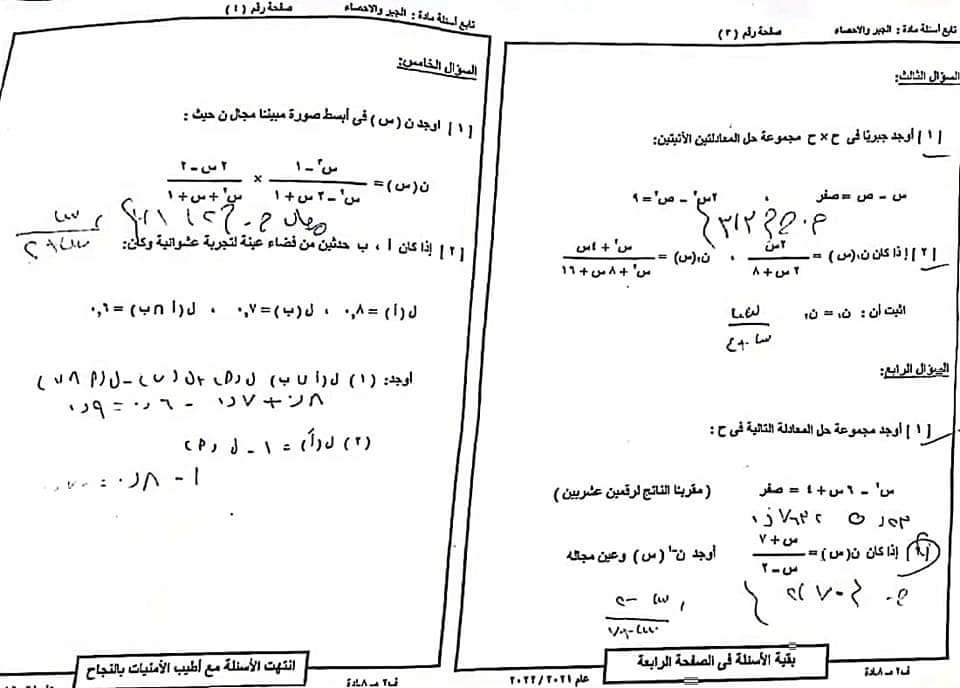 تابع أسئلة مادة : الجبر والاحصاء صفحة رقم (٣)
السؤال الثالث:
[١] أوجد جبريًا فى ح × ح مجموعة حل المعادلتين الأتيتين:
س - ص = صفر ، ٢س٢ - ص٢ = ٩
[٢] إذا كان ن١(س) = ٢س / ٢س + ٨ ، ن٢(س) = س٢ + ٤س / س٢ + ٨س + ١٦
اثبت أن : ن١ = ن٢
السؤال الرابع:
[١] أوجد مجموعة حل المعادلة التالية فى ح :
س٢ - ٦س + ٤ = صفر ( مقربنا الناتج لرقمين عشريين )
إذا كان ن(س) = س + ٧ / س - ٢ أوجد ن-١(س) وعين مجاله
بقية الأسئلة فى الصفحة الرابعة
عام ٢٠٢١ / ٢٠٢٢
تابع أسئلة مادة : الجبر والاحصاء صفحة رقم (٤)
السؤال الخامس:
[١] اوجد ن(س) فى أبسط صورة مبيننا مجال ن حيث :
ن(س) = س٣ - ١ / س٢ - ٢س + ١ × ٢س - ٢ / س٢ + س + ١
[٢] إذا كان أ ، ب حدثين من فضاء عينة لتجربة عشوائية وكان:
ل(أ) = ٠,٨ ، ل(ب) = ٠,٧ ، ل(أ ∩ ب) = ٠,٦
أوجد: (١) ل(أ ∪ ب)
٠,٨ + ٠,٧ - ٠,٦ = ٠,٩
(٢) ل(أَ) = ١ -
١ - ٠,٨ =
انتهت الأسئلة مع أطيب الأمنيات بالنجاح